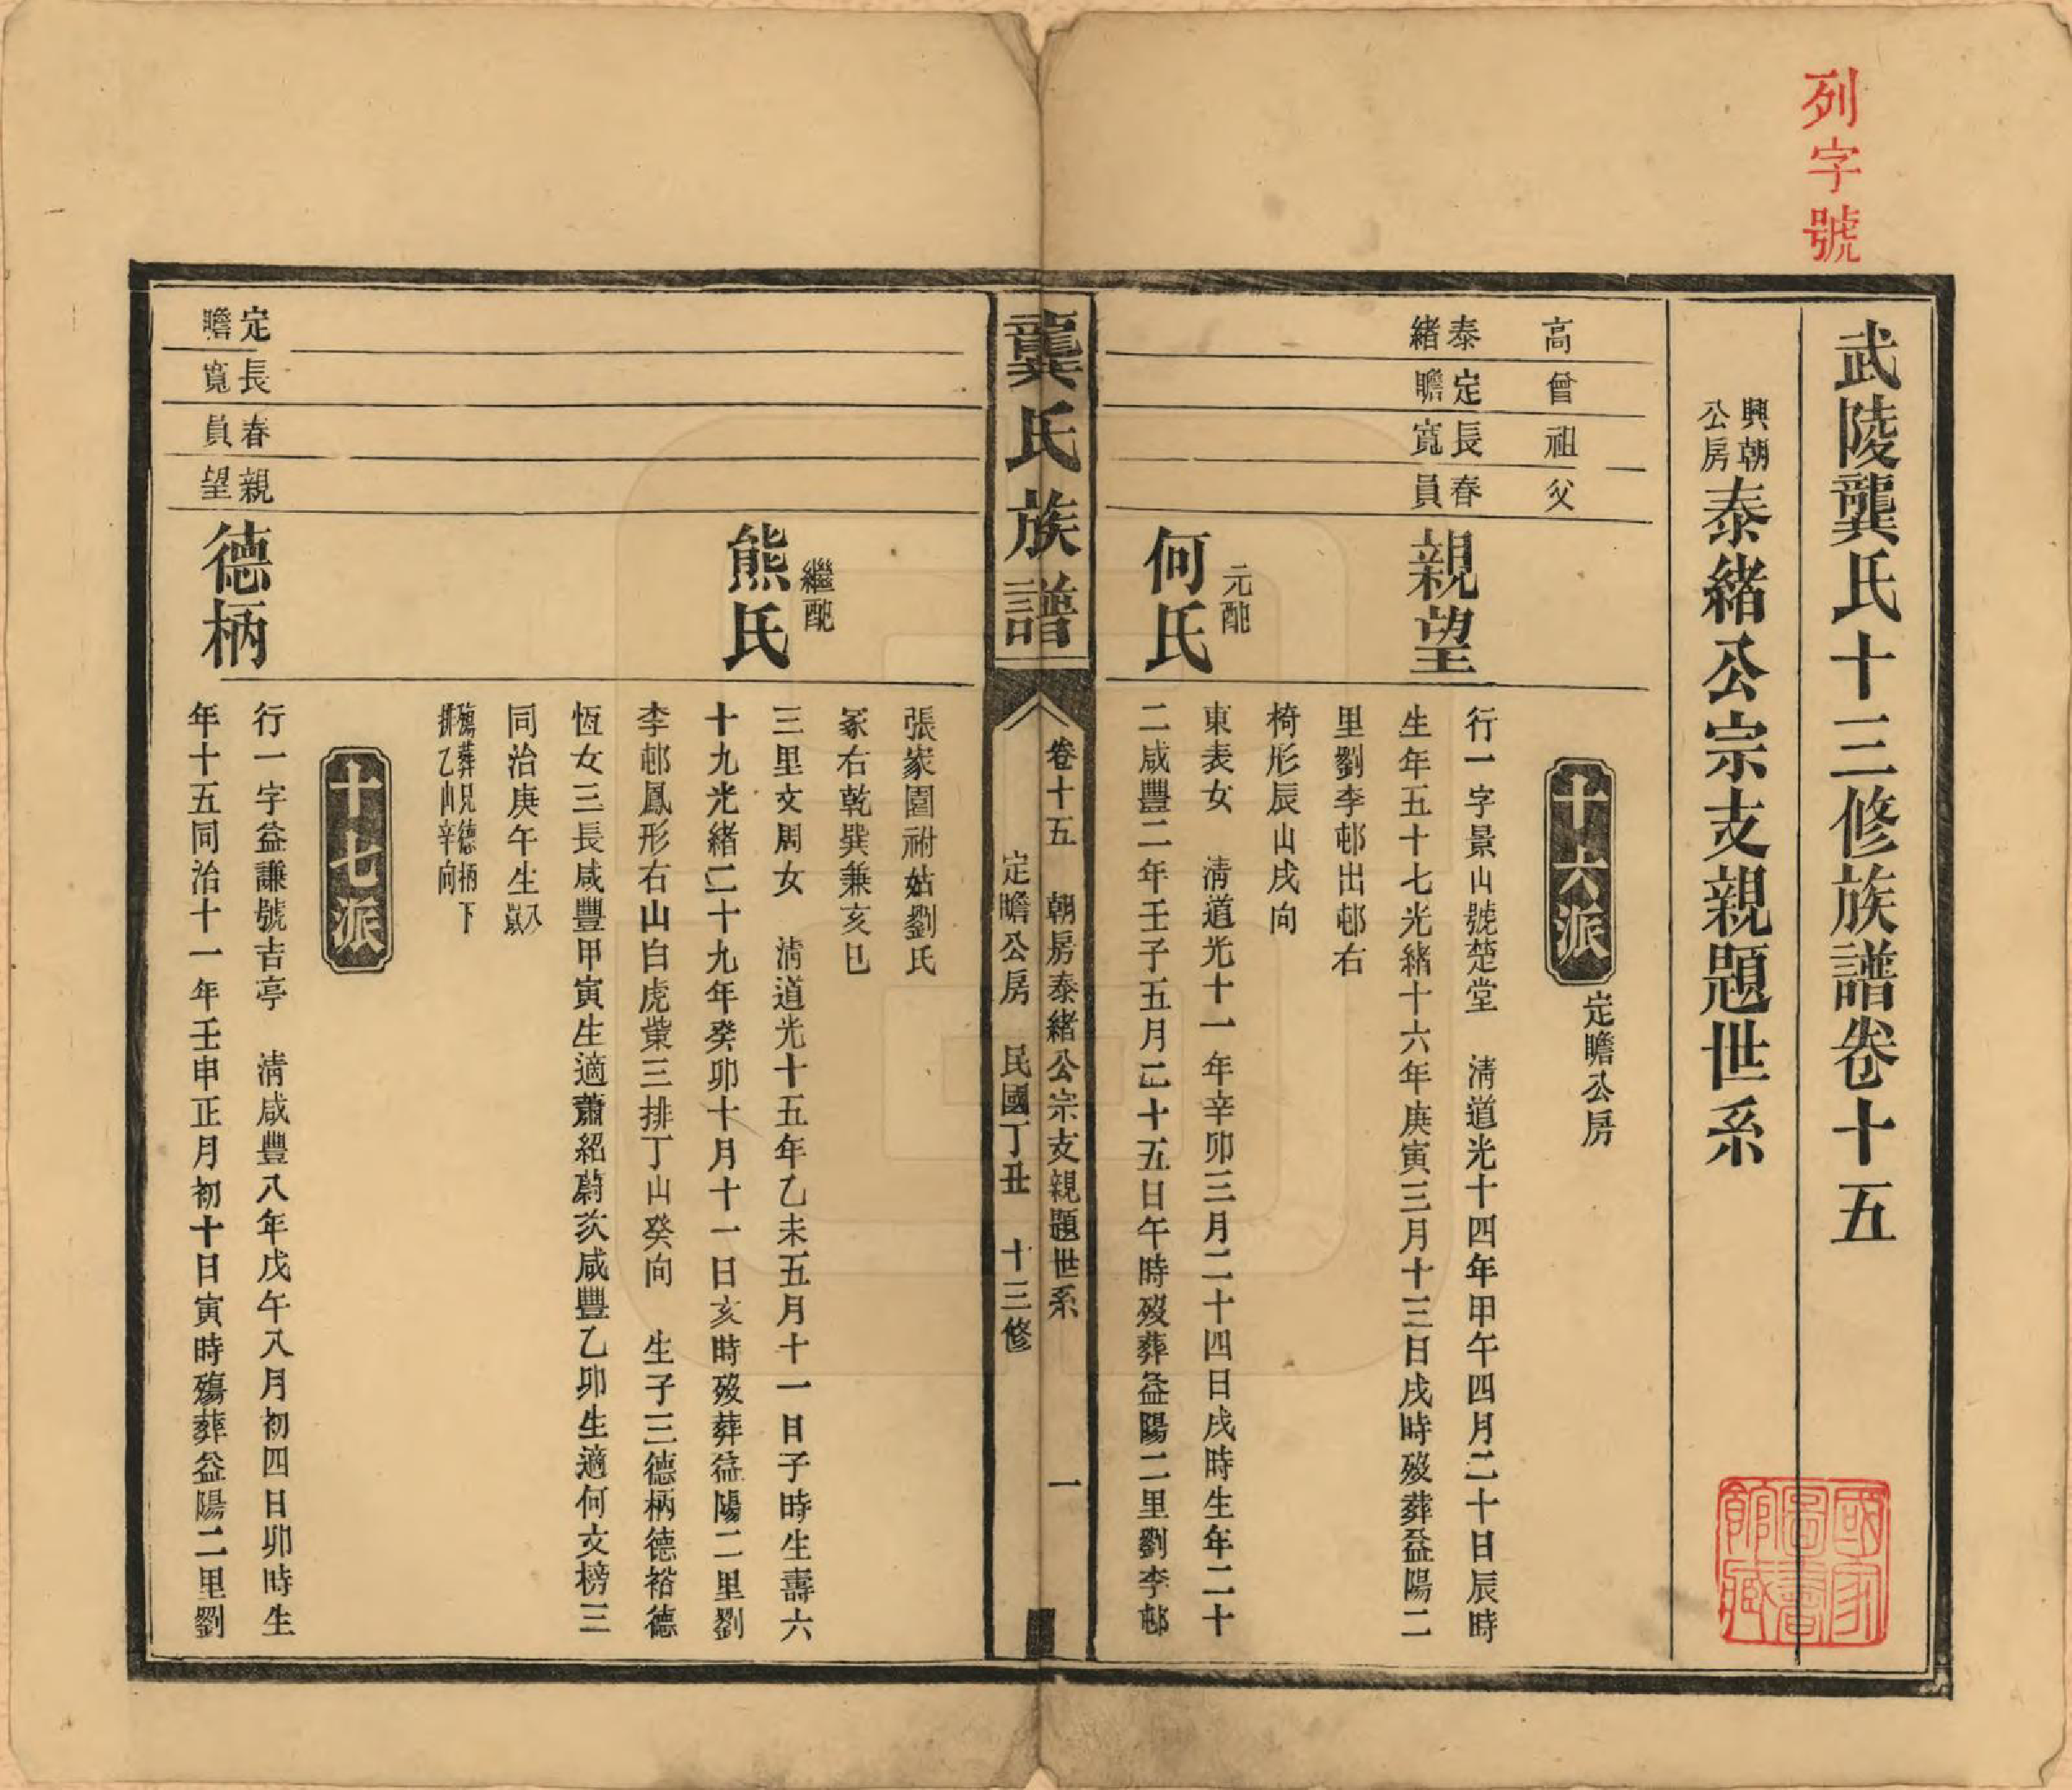 列字號
武陵龔氏十三修族譜卷十五
興朝公房泰緒公宗支親題世系
國家圖書館藏
高 曾 祖 父
十六派 定瞻公房
泰緒 定瞻 長寬 春員
親望
行一字景山號楚堂 清道光十四年甲午四月二十日辰時
生年五十七光緒十六年庚寅三月十三日戌時歿葬益陽二
里劉李邨出邨右
椅形辰山戌向
元配
何氏
東表女 清道光十一年辛卯三月二十四日戌時生年二十
二咸豐二年壬子五月二十五日午時歿葬益陽二里劉李邨
龔氏族譜
卷十五 朝房泰緒公宗支親題世系 一
定瞻公房 民國丁丑 十三修
張家園祔姑劉氏
冢右乾巽兼亥巳
繼配
熊氏
三里文周女 清道光十五年乙未五月十一日子時生壽六
十九光緒二十九年癸卯十月十一日亥時歿葬益陽二里劉
李邨鳳形右山白虎業三排丁山癸向 生子三德柄德裕德
恆女三長咸豐甲寅生適蕭紹蔚次咸豐乙卯生適何文榜三
同治庚午生八歲
殤葬兄德柄下
排乙山辛向
十七派
定瞻 長寬 春員 親望
德柄
行一字益謙號吉亭 清咸豐八年戊午八月初四日卯時生
年十五同治十一年壬申正月初十日寅時殤葬益陽二里劉